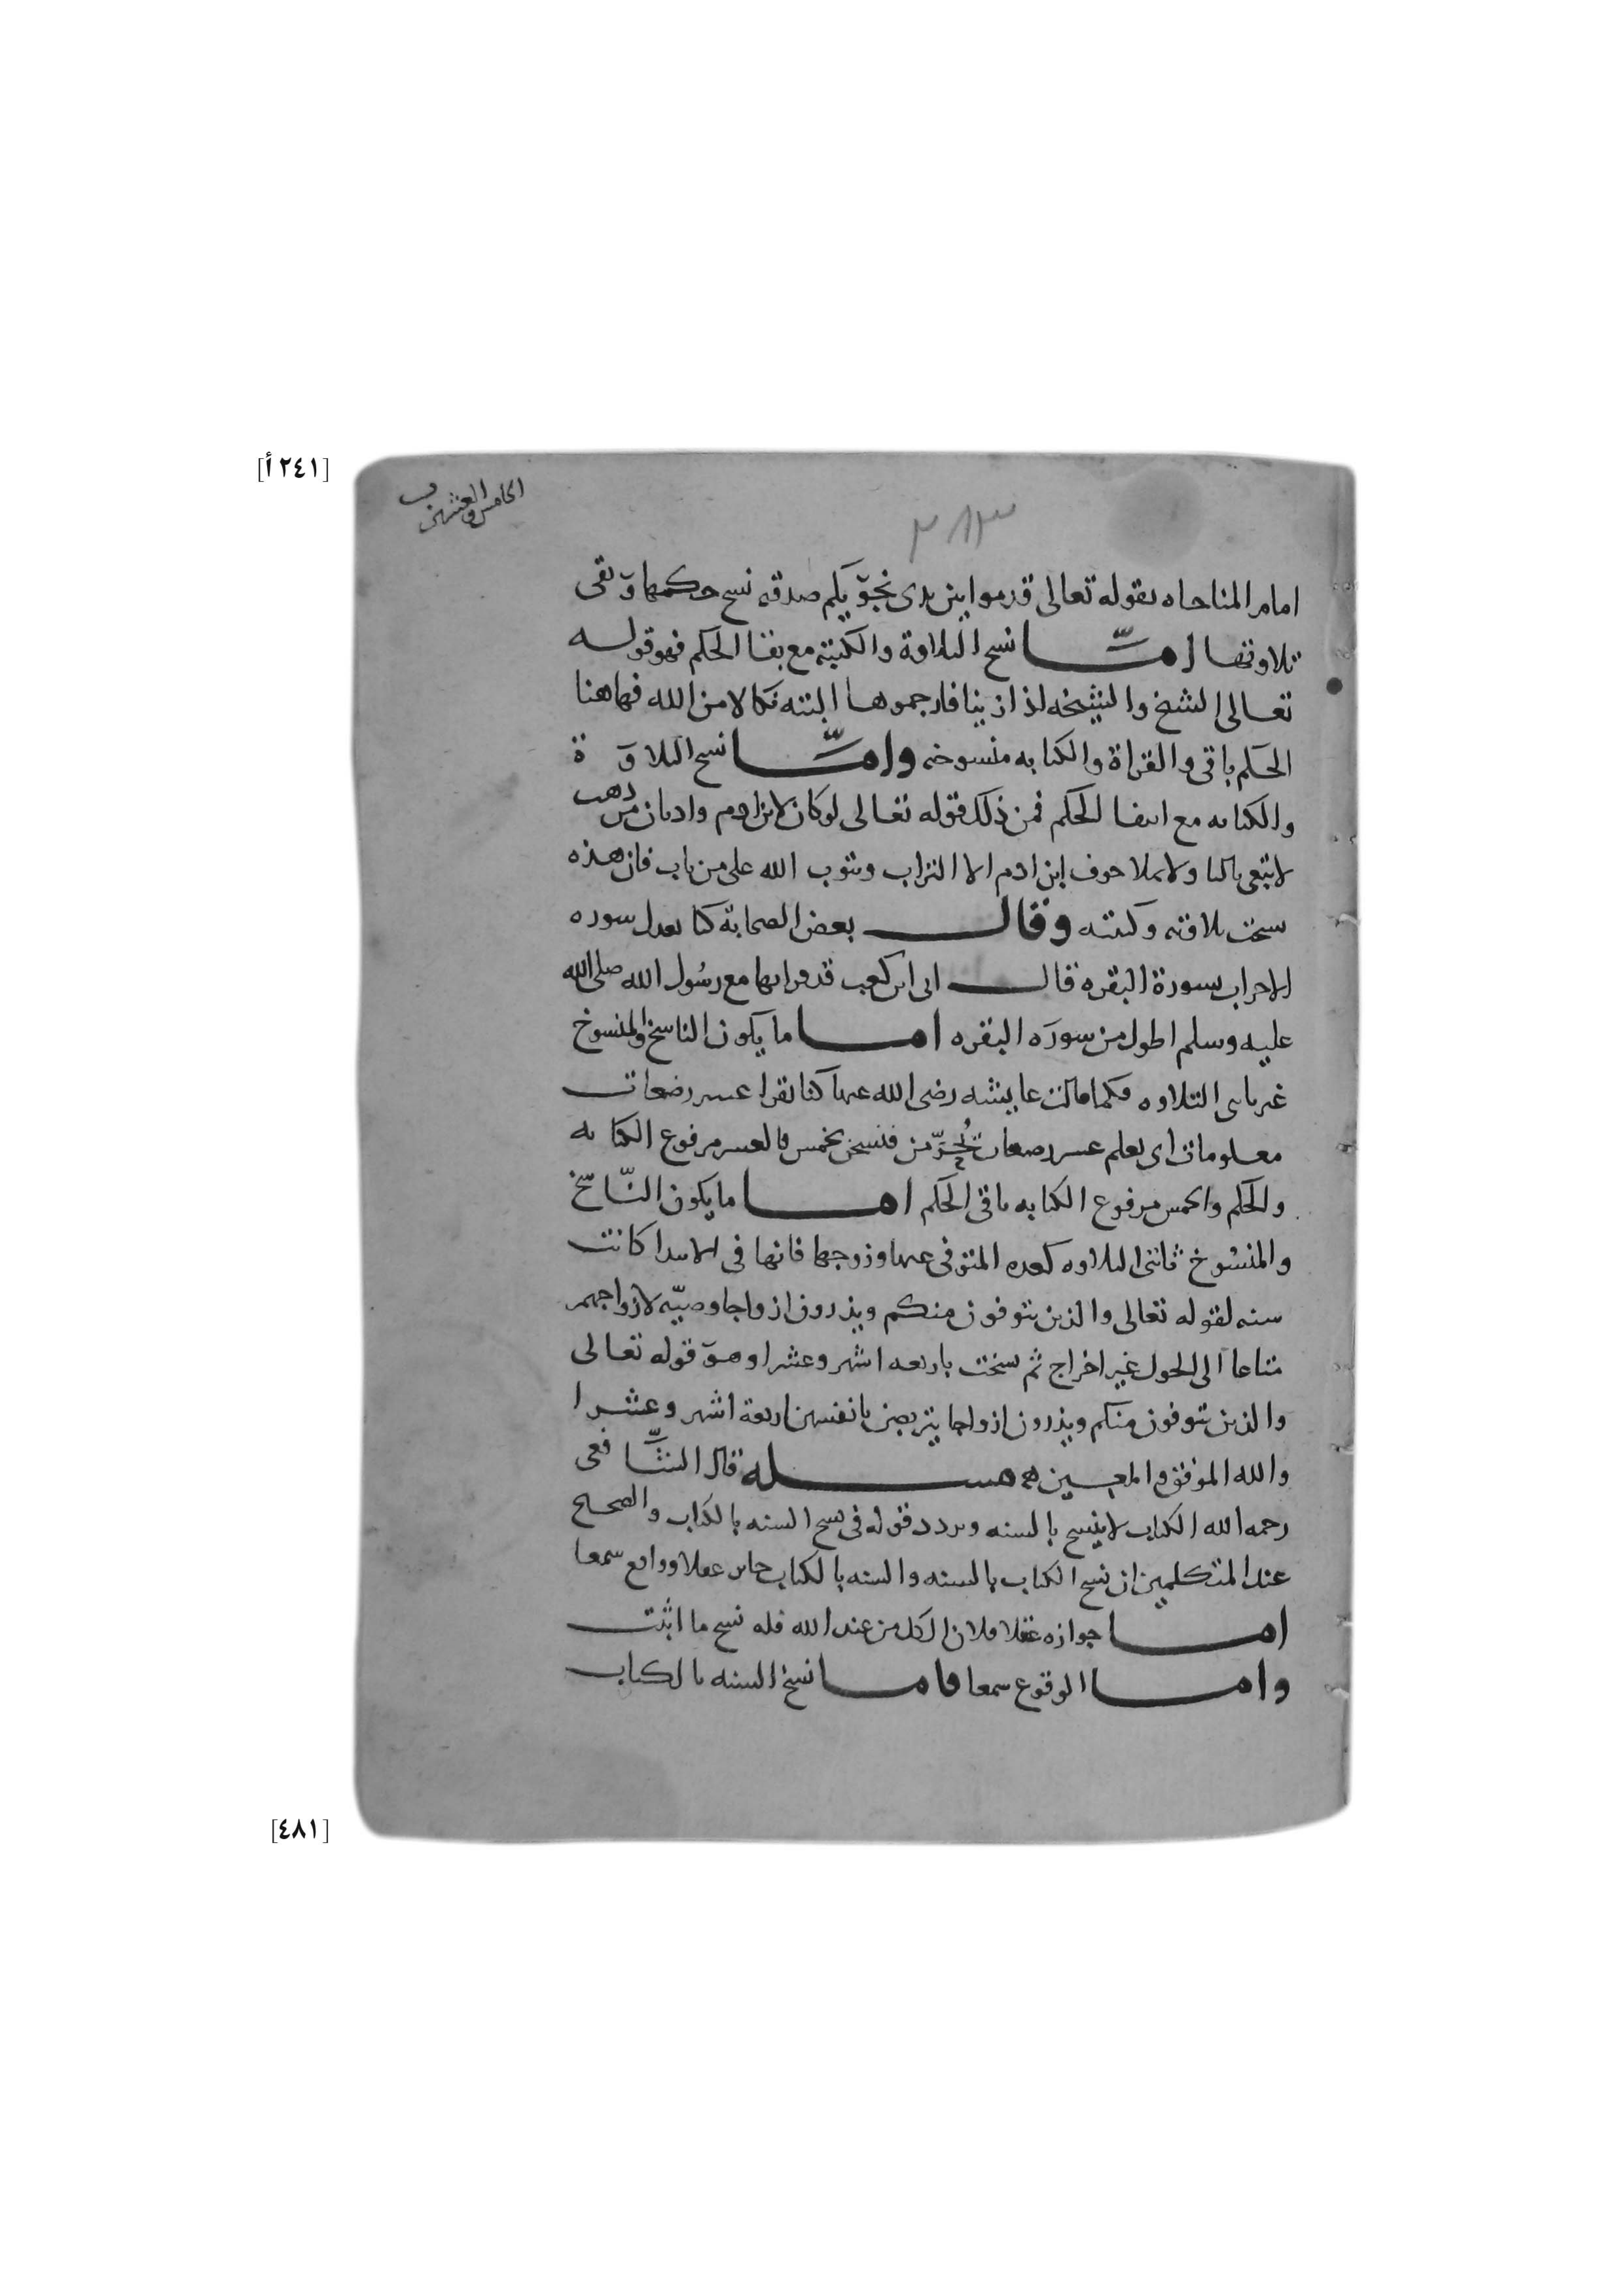 [٢٤١ أ]
الخامس والعشرين
٣٨٣
امام المناجاه بقوله تعالى قدموا بين يدى نجويكم صدقه نسخ حكمها وبقى
تلاوتها امّا نسخ التلاوة والكتبة مع بقا الحكم فهو قوله
تعالى الشيخ والشيخه اذا زنيا فارجموهما البته نكالا من الله فهاهنا
الحكم باقى والقراة والكتابه منسوخه وامّا نسخ التلاوة
والكتابه مع انتفا الحكم فمن ذلك قوله تعالى لو كان لابن ادم واديان من ذهب
لابتغى ثالثا ولا يملا جوف ابن ادم الا التراب ويتوب الله على من تاب فان هذه
نسخت تلاوته وكتبته وقال بعض الصحابة كنا نعدل سوره
الاحزاب بسورة البقره قال ابى ابن كعب قد قراتها مع رسول الله صلى الله
عليه وسلم اطول من سورة البقره اما ما يكون الناسخ والمنسوخ
غير ثابتى التلاوه فكما قالت عايشه رضى الله عنها كنا نقرا عشر رضعات
معلومات اى يعلم عشر رضعات تحرّمن فنسخن بخمس فالعشر مرفوع الكتابه
والحكم والخمس مرفوع الكتابه باقى الحكم اما ما يكون النّاسخ
والمنسوخ ثابتى التلاوه كعده المتوفى عنها زوجها فانها فى الابتدا كانت
سنه لقوله تعالى والذين يتوفون منكم ويذرون ازواجا وصيّه لازواجهم
متاعا الى الحول غير اخراج ثم نسخت باربعه اشهر وعشرا وهو قوله تعالى
والذين يتوفون منكم ويذرون ازواجا يتربصن بانفسهن اربعة اشهر وعشرا
والله الموفق والمعين مسله قال الشّافعى
رحمه الله الكتاب لا ينسخ بالسنه وتردد قوله فى نسخ السنه بالكتاب والصحيح
عند المتكلمين ان نسخ الكتاب بالسنه والسنه بالكتاب جايز عقلا وواقع سمعا
اما جوازه عقلا فلان الكل من عند الله فله نسخ ما اثبت
واما الوقوع سمعا فاما نسخ السنه بالكتاب
[٤٨١]